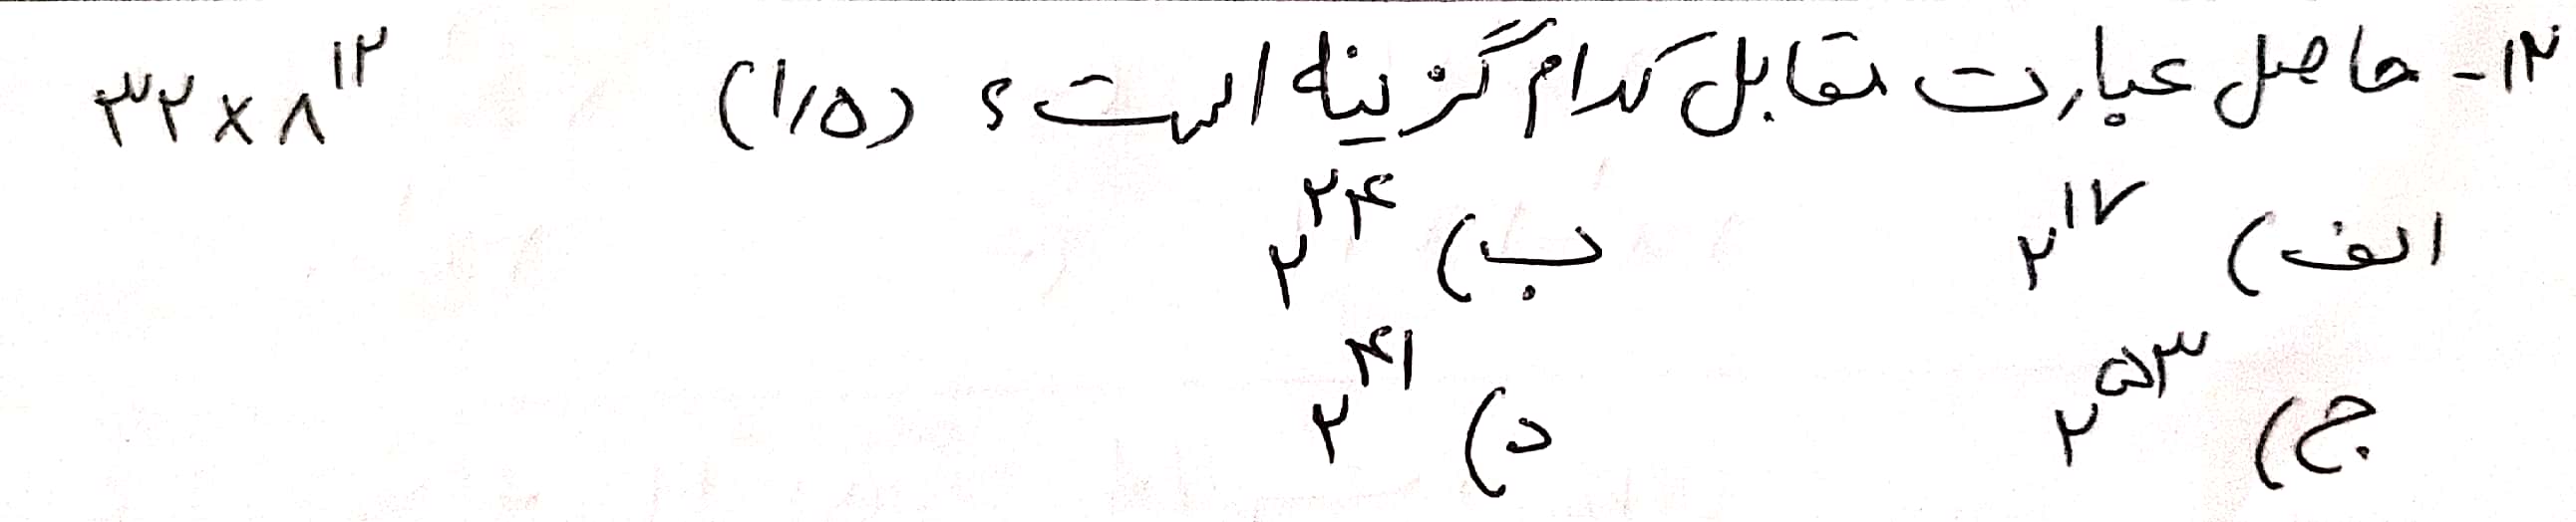 ۱۳- حاصل عبارت مقابل کدام گزینه است؟ (۱/۵) ۳۲×۸^۱۲
الف) ۲^۱۷ ب) ۲^۲۴
ج) ۲^۵۳ د) ۲^۴۱